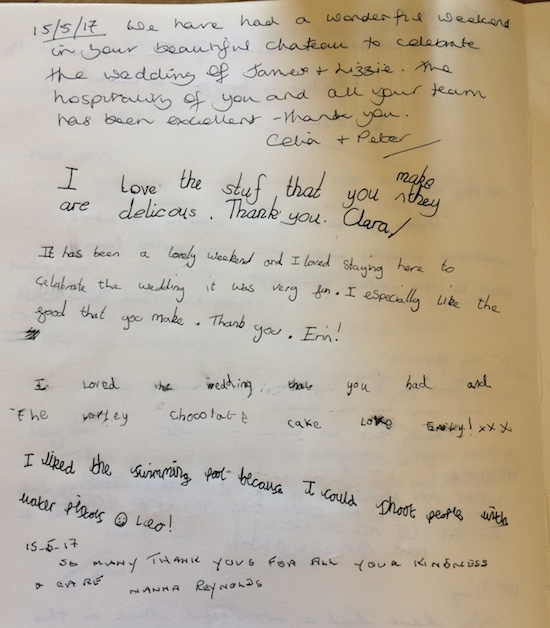 15/5/17 We have had a wonderful weekend
in your beautiful chateau to celebrate
the wedding of James + Lizzie. The
hospitality of you and all your team
has been excellent - thank you.
Celia + Peter
I Love the stuf that you make they
are delicous. Thank you. Clara
It has been a lovely weekend and I loved staying here to
celebrate the wedding it was very fun. I especially like the
food that you make. Thank you. Erin!
I loved the wedding that you had and
The chocolate cake Love Emily! xxx
I liked the swimming pool because I could shoot people with
water pistols ☺ Leo!
15-5-17
SO MANY THANK YOUS FOR ALL YOUR KINDNESS
& CARE NANNA REYNOLDS